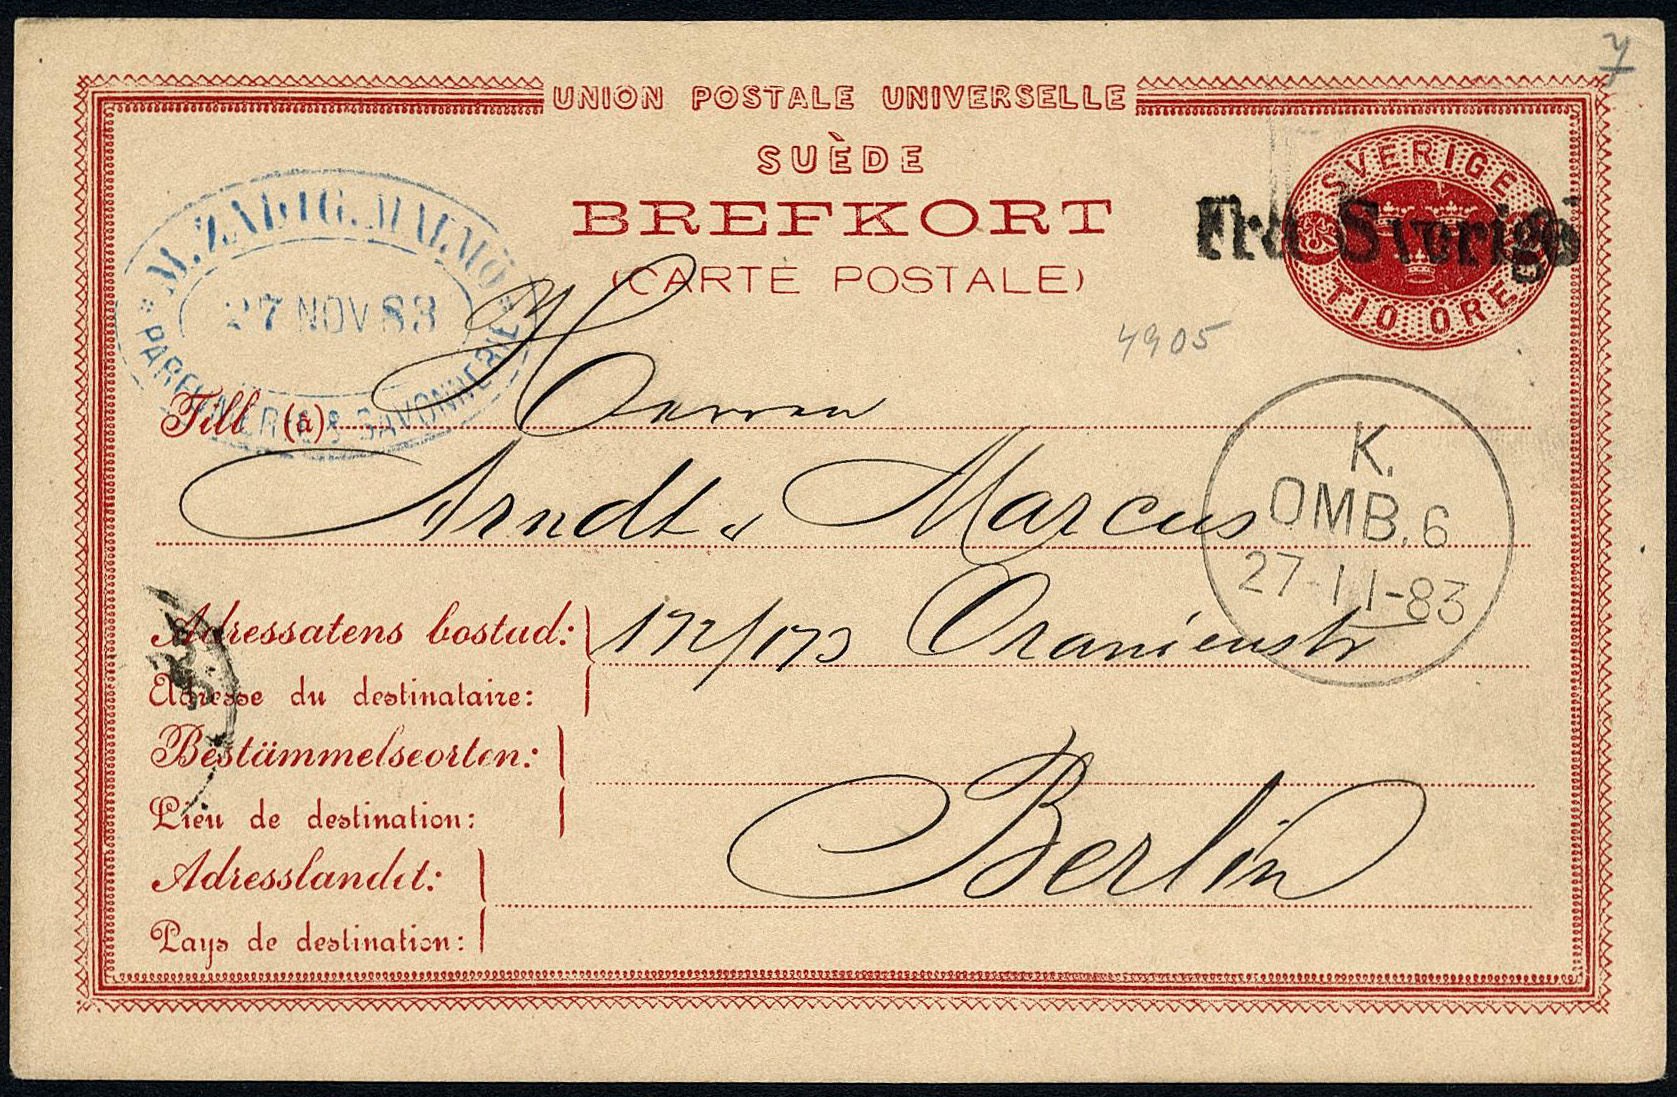 UNION POSTALE UNIVERSELLE
SUÈDE
BREFKORT
(CARTE POSTALE)
SVERIGE
TIO ÖRE
Från Sverige
M. ZADIG. MALMÖ
27 NOV 83
PARFUMERIE & SAVONNERIE
7
4905
Till (à) Herren
Arndt & Marcus
K.
OMB. 6
27-11-83
Adressatens bostad: 172/173 Oranienstr
Adresse du destinataire:
Bestämmelseorten:
Lieu de destination:
Berlin
Adresslandet:
Pays de destination: